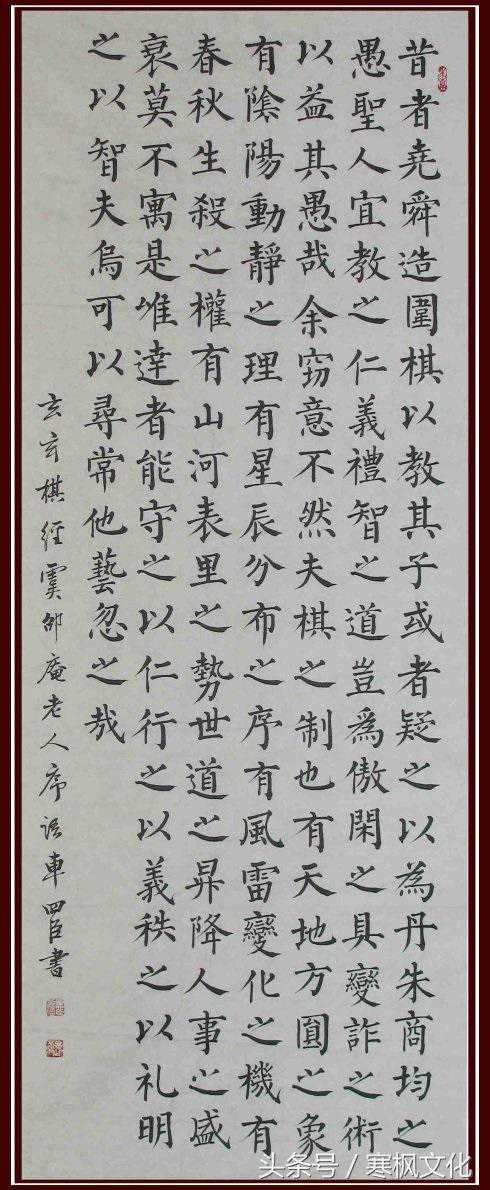 昔者堯舜造圍棋以教其子或者疑之以為丹朱商均之
愚聖人宜教之仁義禮智之道豈為傲閑之具變詐之術
以益其愚哉余窃意不然夫棋之制也有天地方圓之象
有陰陽動靜之理有星辰分布之序有風雷變化之機有
春秋生殺之權有山河表里之勢世道之昇降人事之盛
衰莫不寓是唯達者能守之以仁行之以義秩之以礼明
之以智夫烏可以尋常他藝忽之哉
玄玄棋經虞邵庵老人序語車
書
头条号 / 寒枫文化